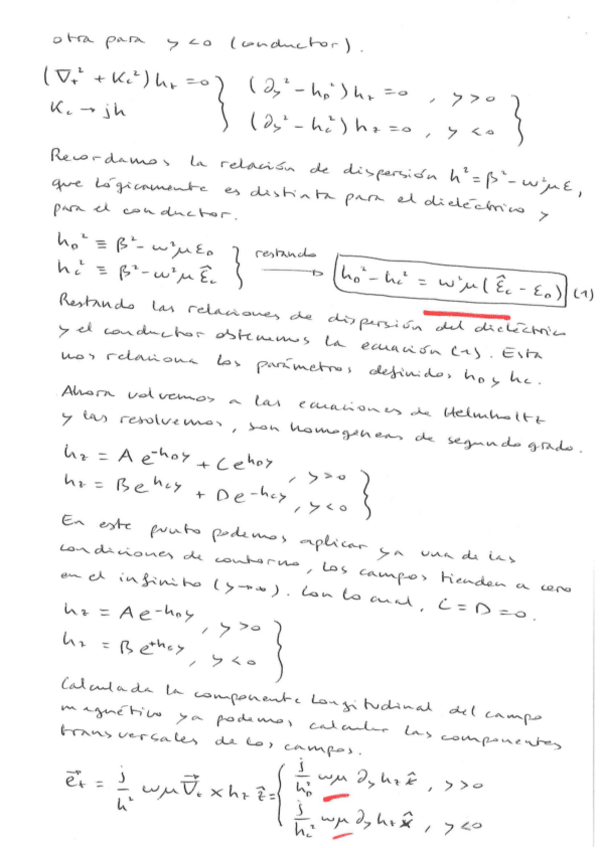 otra para y<0 (conductor).
(∇ₜ² + Kc²) hz = 0 } (∂y² - h₀²) hz = 0 , y>0 }
Kc → jh } (∂y² - hc²) hz = 0 , y<0 }
Recordamos la relación de dispersión h² = β² - ω²με,
que lógicamente es distinta para el dieléctrico y
para el conductor.
h₀² ≡ β² - ω²με₀ } restando
hc² ≡ β² - ω²με̂c } → h₀² - hc² = ω²μ(ε̂c - ε₀) (1)
Restando las relaciones de dispersión del dieléctrico
y el conductor obtenemos la ecuación (1). Esta
nos relaciona los parámetros definidos h₀ y hc.
Ahora volvemos a las ecuaciones de Helmholtz
y las resolvemos, son homogéneas de segundo grado.
hz = A e^-h₀y + C e^h₀y , y>0 }
hz = B e^hcy + D e^-hcy , y<0 }
En este punto podemos aplicar ya una de las
condiciones de contorno, los campos tienden a cero
en el infinito (y→∞). Con lo cual, C = D = 0.
hz = A e^-h₀y , y>0 }
hz = B e^+hcy , y<0 }
Calculada la componente longitudinal del campo
magnético ya podemos calcular las componentes
transversales de los campos.
e⃗t = j/h² ωμ ∇⃗t × hz ẑ = { j/h₀² ωμ ∂y hz x̂ , y>0
j/hc² ωμ ∂y hz x̂ , y<0